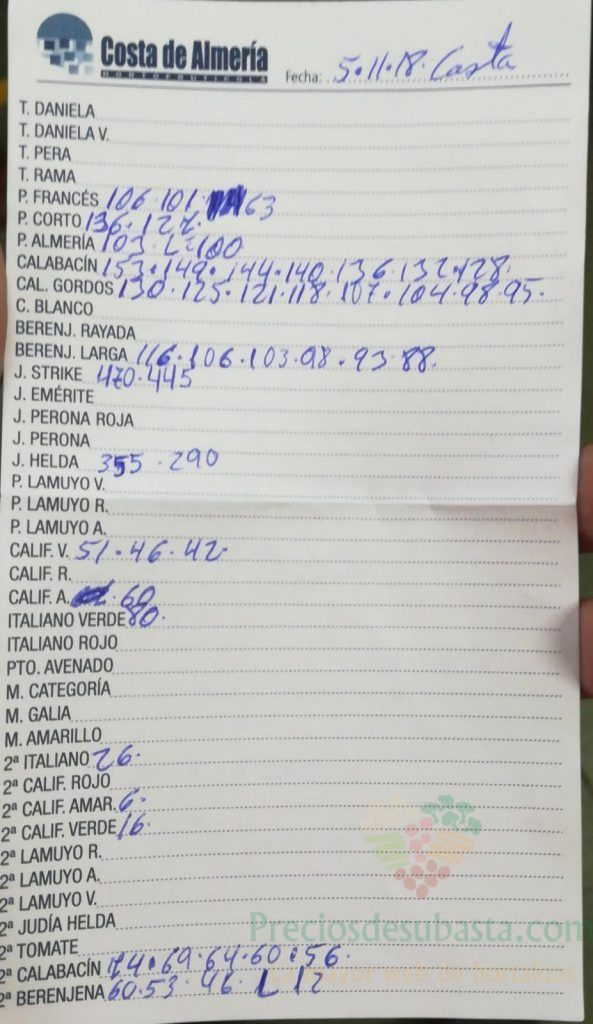 Costa de Almería
HORTOFRUTÍCOLA
Fecha: 5.11.18. Costa
T. DANIELA
T. DANIELA V.
T. PERA
T. RAMA
P. FRANCÉS 106.101. 63
P. CORTO 136.127.
P. ALMERÍA 103. L=100
CALABACÍN 153.149.144.140.136.132.128.
CAL. GORDOS 130.125.121.118.107.104.98.95.
C. BLANCO
BERENJ. RAYADA
BERENJ. LARGA 116.106.103.98.93.88.
J. STRIKE 470.445
J. EMÉRITE
J. PERONA ROJA
J. PERONA
J. HELDA 355.290
P. LAMUYO V.
P. LAMUYO R.
P. LAMUYO A.
CALIF. V. 51.46.42.
CALIF. R.
CALIF. A. .60
ITALIANO VERDE 80.
ITALIANO ROJO
PTO. AVENADO
M. CATEGORÍA
M. GALIA
M. AMARILLO
2ª ITALIANO 26.
2ª CALIF. ROJO
2ª CALIF. AMAR. 6.
2ª CALIF. VERDE 16.
2ª LAMUYO R.
2ª LAMUYO A.
2ª LAMUYO V.
2ª JUDÍA HELDA
Preciosdesubasta.com
2ª TOMATE
2ª CALABACÍN 74.69.64.60.56.
web de hortalizas
2ª BERENJENA 60.53.46. L 12